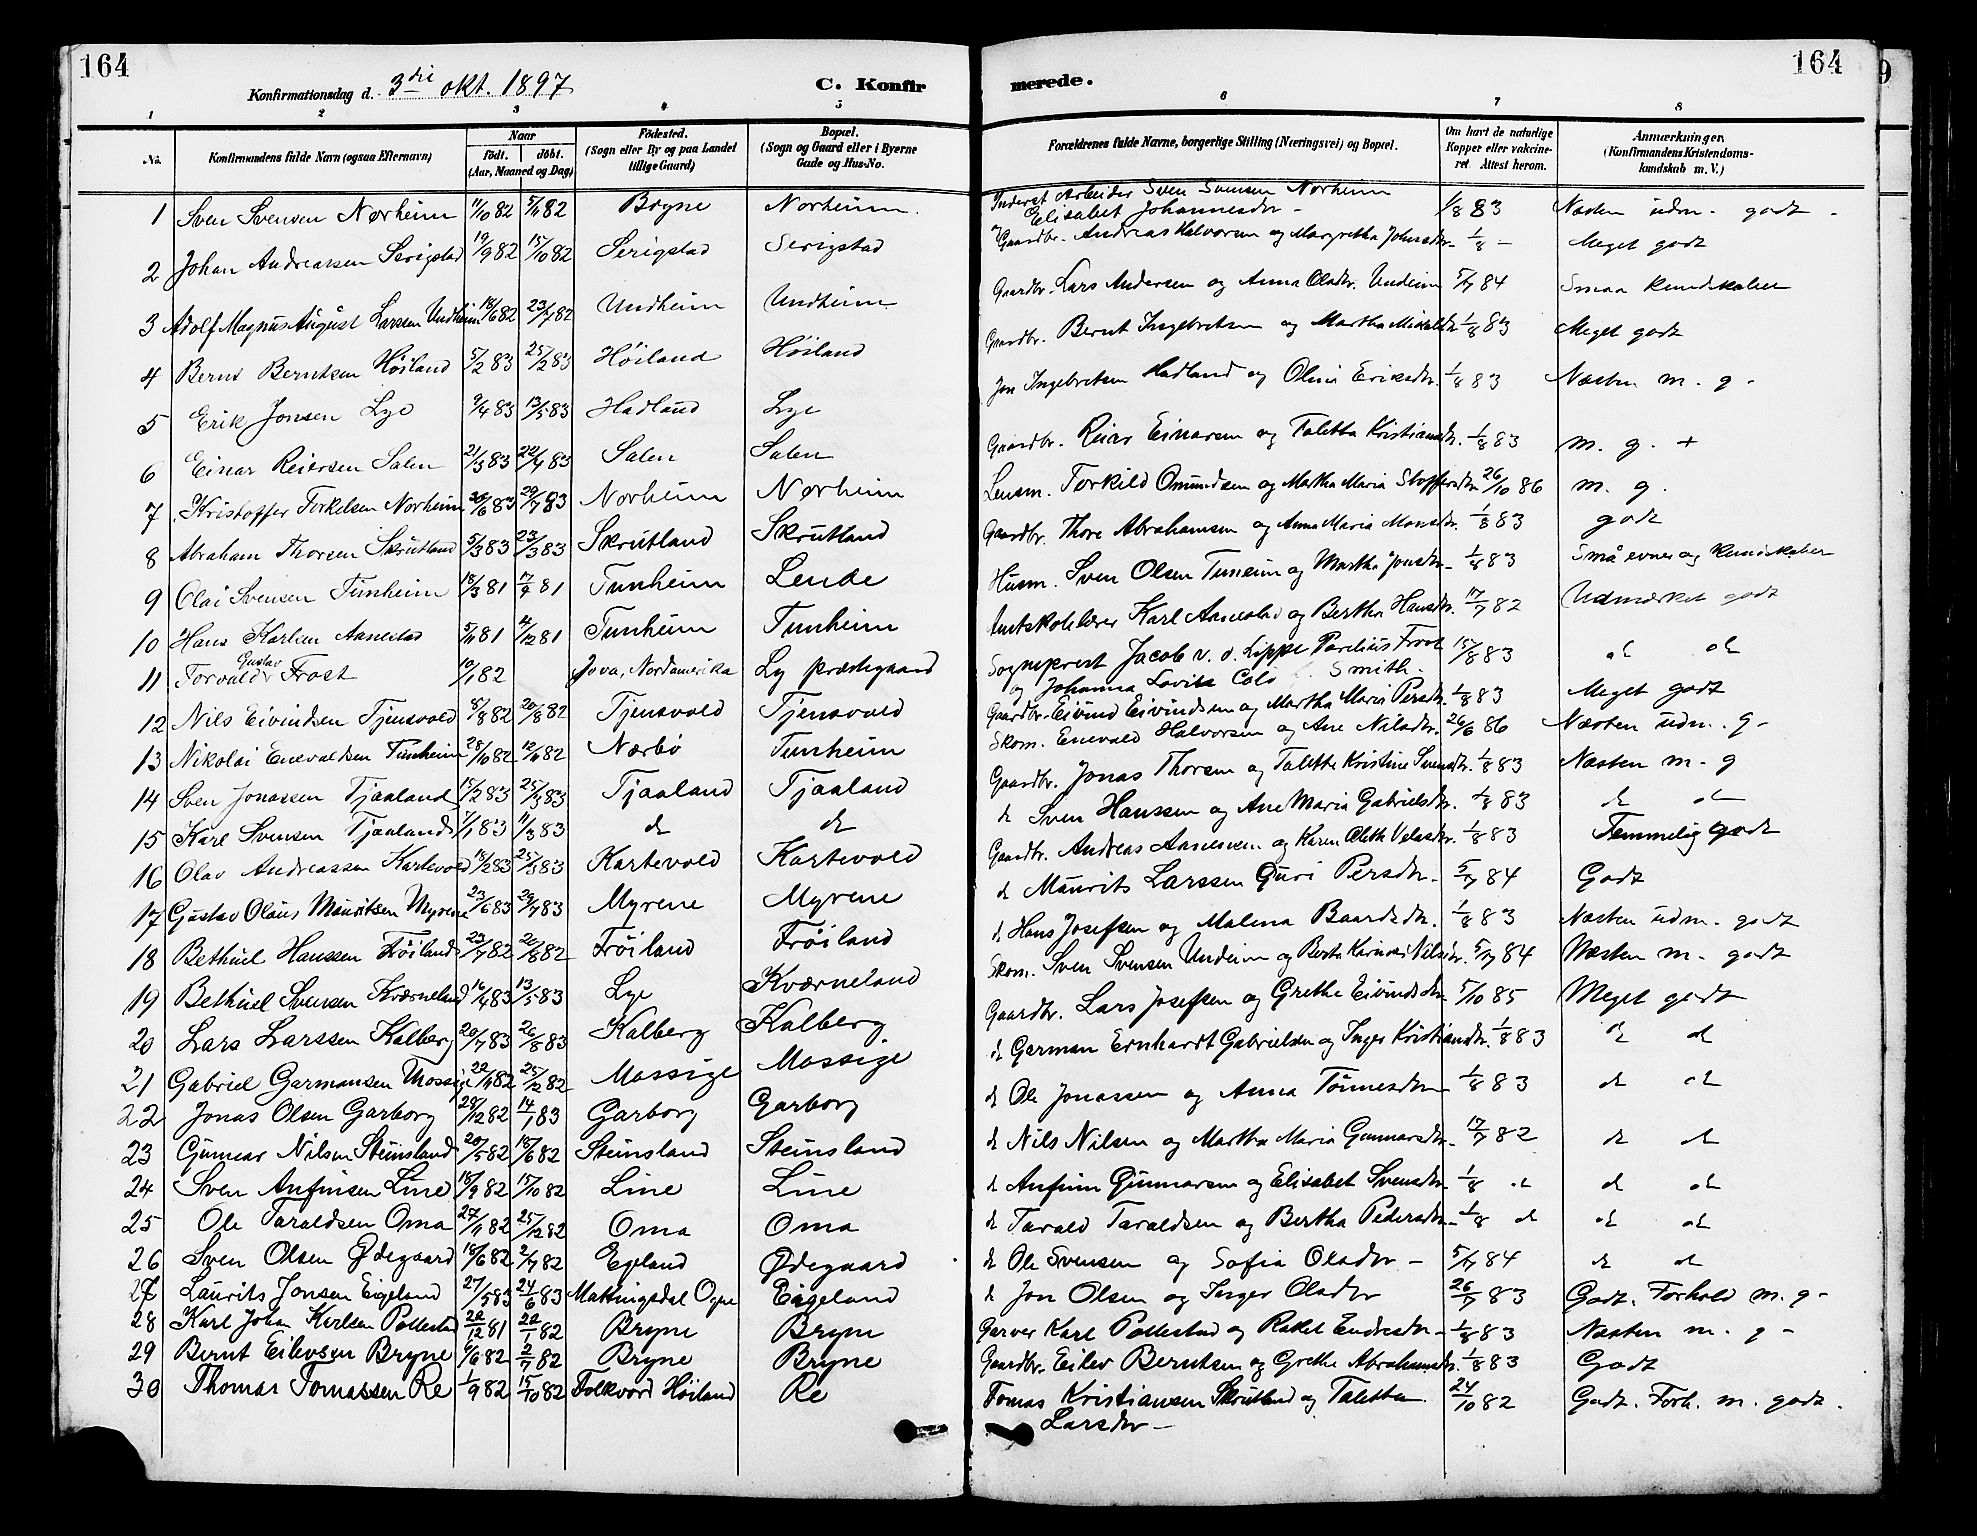 164
Konfirmationsdag d. 3die okt. 1897
C. Konfirmerede.
164
1 2 3 4 5 6 7 8
No. | Konfirmandens fulde Navn (ogsaa Efternavn) | Naar født. | døbt. (Aar, Maaned og Dag) | Fødested. (Sogn eller By og paa Landet tillige Gaard) | Bopæl. (Sogn og Gaard eller i Byerne Gade og Hus-No. | Forældrenes fulde Navne, borgerlige Stilling (Næringsvei) og Bopæl. | Om havt de naturlige Kopper eller vakcineret Attest herom. | Anmærkninger. (Konfirmandens Kristendomskundskab m. V.)
1 Sven Svensen Norheim 11/10 82 5/11 82 Bryne Norheim. Inderst Arbeider Sven Svensen Norheim
Elisabet Johannesdtr - 1/8 83 Næsten udm. godt -
2 Johan Andreassen Serigstad 19/9 82 15/10 82 Serigstad Serigstad Gaardbr. Andreas Halvorsen og Margretha Johnsdtr. 1/8 - Meget godt
3 Adolf Magnus August Larssen Undheim 18/6 82 23/7 82 Undheim Undheim Gaardbr. Lars Andersen og Anna Olsdtr. Undeim 5/7 84 Smaa kundskaber
4 Bernt Berntsen Höiland 5/2 83 25/2 83 Höiland Höiland Gaardbr. Bernt Ingebretsen og Martha 1/8 83 Meget godt
5 Erik Jonsen Lye 9/4 83 13/5 83 Hadland Lye Jon Ingebretsen Hadland og Olina Eriksdtr. 1/8 83 Næsten m. g -
6 Einar Reiersen Salen 21/3 83 22/4 83 Salen Salen Gaardbr. Reier Einarsen og Taletta Kristiansdtr. 1/8 83 m. g. +
7 Kristoffer Torkelsen Norheim 26/6 83 29/7 83 Norheim Norheim Lensm. Torkild Omundsen og Martha Maria Stoffersdtr 26/10 86 m. g.
8 Abraham Thorsen Skrutland 5/3 83 23/3 83 Skrutland Skrutland Gaardbr. Thore Abrahamsen og Anna Maria Monsdtr. 1/8 83 godt
9 Olai Svensen Tunheim 18/3 81 17/4 81 Tunheim Lende Husm. Sven Olsen Tuneim og Martha Jonsdtr - 1/8 83 Små evner og kundskaber
10 Hans Karlsen Aanestad 5/11 81 4/12 81 Tunheim Tunheim Amtskolelærer Karl Aanestad og Bertha Hansdtr. 17/7 82 Udmærket godt
11 Torvald Gustav Frost 10/1 82 Jova, Nordamerika Ly prestegaard Sogneprest Jacob v. d. Lippe Parelius Frost
og Johanna Lovisa Smith. 15/8 83 do do
12 Nils Eivindsen Tjensvold 8/8 82 20/8 82 Tjensvold Tjensvold Gaardbr. Eivind Eivindsen og Martha Maria Persdtr 1/8 83 Meget godt
13 Nikolai Enevaldsen Tunheim 28/10 82 12/11 82 Nærbö Tunheim Skom. Enevald Halvorsen og Ane Nilsdtr. 26/6 86 Næsten udm. g -
14 Sven Jonassen Tjaaland 15/2 83 25/3 83 Tjaaland Tjaaland Gaardbr. Jonas Thorsen og Taletta Kristine Svensdtr. 1/8 83 Næsten m. g
15 Karl Svensen Tjaaland 7/1 83 11/3 83 do do do Sven Hanssen og Ane Maria Gabrielsdtr. 1/8 83 do do
16 Olav Andreassen Kartevold 15/2 83 25/3 83 Kartevold Kartevold Gaardbr. Andreas Aanensen og Karen Oleth Velasdtr. 1/8 83 Temmelig godt
17 Gustav Olaus Mauritsen Myrene 23/6 83 29/7 83 Myrene Myrene do Maurits Larssen Guri Persdtr - 5/7 84 Godt
18 Bethuel Hanssen Fröiland 23/7 82 20/8 82 Fröiland Fröiland do Hans Josefsen og Malena Baardsdtr. 1/8 83 Næsten udm. godt
19 Bethuel Svensen Kværneland 16/4 83 13/5 83 Lye Kværneland Skom. Sven Svensen Undeim og Berta Karine Nilsdtr. 5/7 84 Næsten m. godt
20 Lars Larssen Kalberg 20/7 83 26/8 83 Kalberg Kalberg Gaardbr. Lars Josefsen og Grethe Eivindsdtr 5/10 85 Meget godt
21 Gabriel Germansen Mossige 22/11 82 25/12 82 Mossige Mossige do German Ernhardt Gabrielsen og Inger Kristiansdtr. 1/8 83 do do
22 Jonas Olsen Garborg 28/12 82 14/1 83 Garborg Garborg do Ole Jonassen og Anna Tönnesdtr - 1/8 83 do do
23 Gunnar Nilsen Steinsland 20/5 82 18/6 82 Steinsland Steinsland do Nils Nilsen og Martha Maria Gunnarsdtr - 17/7 82 do do
24 Sven Anfinsen Line 18/9 82 15/10 82 Line Line do Anfinn Gunnarsen og Elisabet Svensdtr - 1/8 do do do
25 Ole Taraldsen Oma 27/11 82 25/12 82 Oma Oma do Tarald Taraldsen og Bertha Pedersdtr - 1/8 do do do
26 Sven Olsen Ødegaard 18/6 82 2/7 82 Egeland Ødegaard do Ole Svensen og Sofia Olsdtr - 5/7 84 do do
27 Laurits Jonsen Eigeland 27/5 83 24/6 83 Mattingsdal Ogne Eigeland do Jon Olsen og Inger Olsdtr 26/7 83 Godt. Forhold m. g -
28 Karl Johan Karlsen Pollestad 22/12 81 22/1 82 Bryne Bryne Garver Karl Pollestad og Rakel Endresdtr - 1/8 83 Næsten m. g -
29 Bernt Eilevsen Bryne 4/6 82 2/7 82 Bryne Bryne Gaardbr. Eilev Berntsen og Grethe Abrahamsdtr. 1/8 83 Godt
30 Thomas Tomassen Re 1/9 82 15/10 82 Folkvord Höiland Re Tomas Kristiansen Skrutland og Taletta
Larsdtr - 24/10 82 Godt. Forh. m. godt.